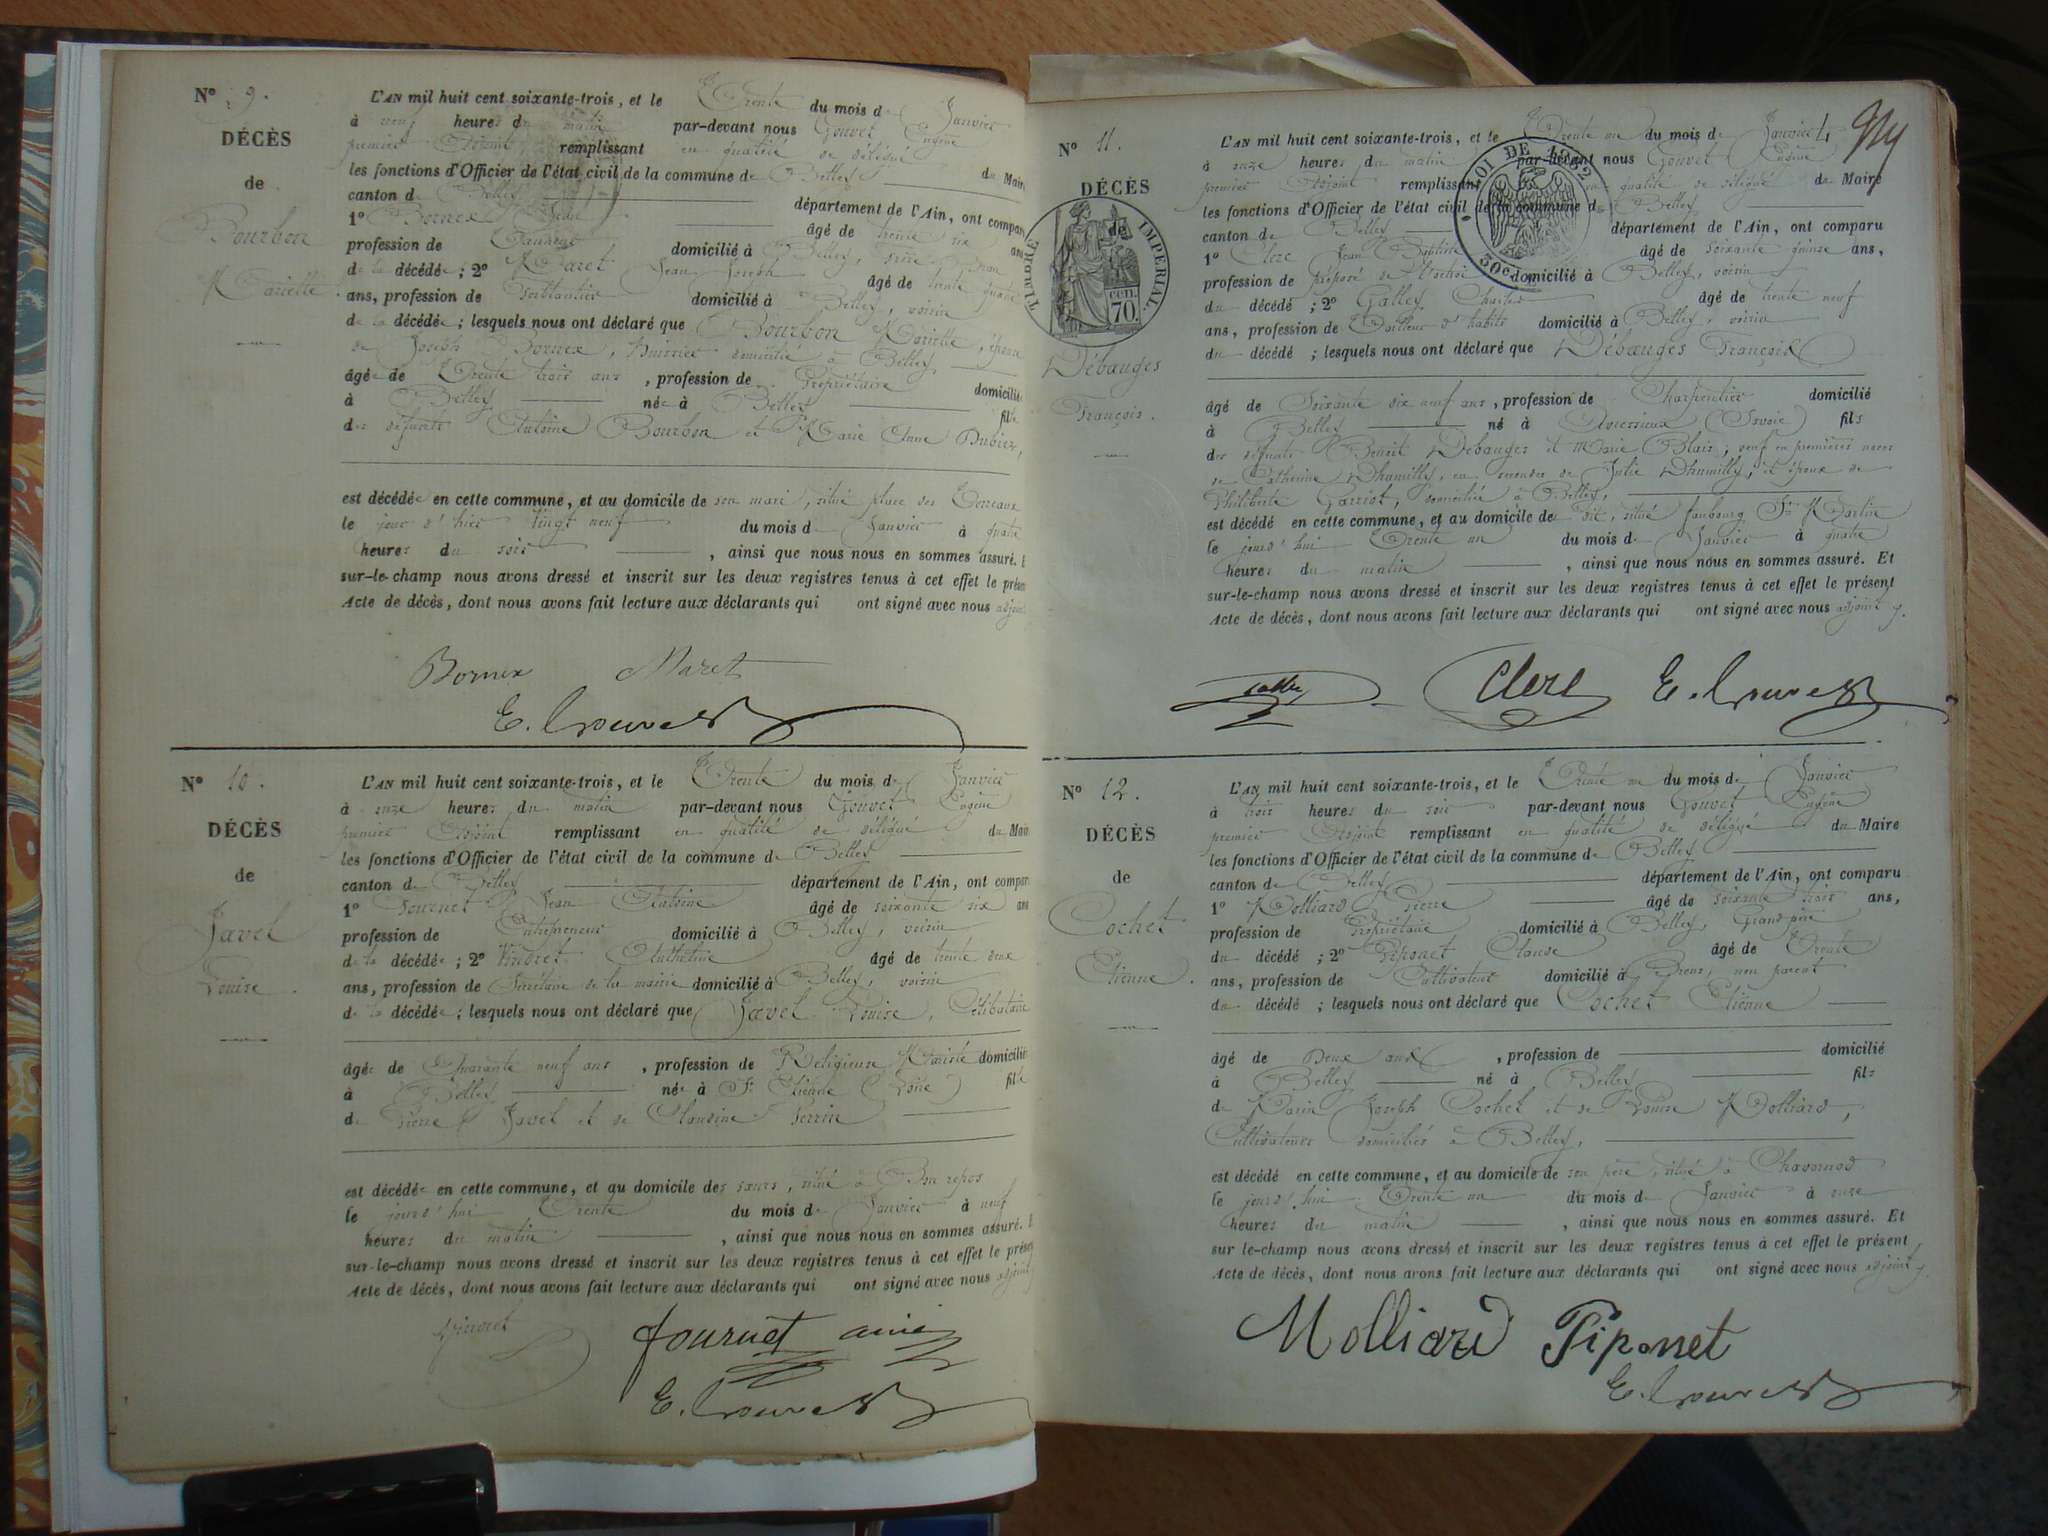 N° 9.
DÉCÈS
de
Bourbon
Mariette
L'AN mil huit cent soixante-trois, et le Trente du mois de Janvier
à neuf heures du matin par-devant nous Gouvet Eugène
premier Adjoint remplissant en qualité de délégué du Maire
les fonctions d'Officier de l'état civil de la commune de Belley
canton de Belley département de l'Ain, ont comparu
1° Bornex Jean âgé de trente six ans
profession de domicilié à Belley,
de la décédée; 2° Maret Jean Joseph âgé de trente quatre
ans, profession de ferblantier domicilié à Belley, voisin
de la décédée; lesquels nous ont déclaré que Bourbon Mariette, épouse
de Joseph Bornex, huissier domicilié à Belley,
âgée de Trente trois ans, profession de Propriétaire domiciliée
à Belley née à Belley fille
des défunts Antoine Bourbon et Marie Anne Dubiez,
est décédée en cette commune, et au domicile de son mari, situé place des Terreaux
le jour d'hier vingt neuf du mois de Janvier à quatre
heures du soir, ainsi que nous nous en sommes assuré. E
sur-le-champ nous avons dressé et inscrit sur les deux registres tenus à cet effet le présen
Acte de décès, dont nous avons fait lecture aux déclarants qui ont signé avec nous adjoint
Bornex Maret
E. Gouvet
N° 10.
DÉCÈS
de
Javel
Louise.
L'AN mil huit cent soixante-trois, et le Trente du mois de Janvier
à onze heures du matin par-devant nous Gouvet Eugène
premier Adjoint remplissant en qualité de délégué du Maire
les fonctions d'Officier de l'état civil de la commune de Belley
canton de Belley département de l'Ain, ont comparu
1° Fournet Jean Antoine âgé de soixante six ans
profession de Entrepreneur domicilié à Belley, voisin
de la décédée; 2° Vindret Anthelme âgé de trente deux
ans, profession de Secrétaire de la mairie domicilié à Belley, voisin
de la décédée; lesquels nous ont déclaré que Javel Louise, Célibataire
âgée de Quarante neuf ans, profession de Religieuse Mariste domiciliée
à Belley née à St Etienne (Loire) fille
de Pierre Javel et de Claudine Perrin
est décédée en cette commune, et au domicile des sœurs, situé à Bon repos
le jourd'hui Trente du mois de Janvier à neuf
heures du matin, ainsi que nous nous en sommes assuré. E
sur-le-champ nous avons dressé et inscrit sur les deux registres tenus à cet effet le présen
Acte de décès, dont nous avons fait lecture aux déclarants qui ont signé avec nous adjoint
fournet ainé
E. Gouvet
N° 11.
DÉCÈS
de
TIMBRE IMPERIAL
70 cen.
Débauges
François.
LOI DE 1862
30c
L'AN mil huit cent soixante-trois, et le Trente un du mois de Janvier
à onze heures du matin par-devant nous Gouvet Eugène
premier Adjoint remplissant en qualité de délégué du Maire
les fonctions d'Officier de l'état civil de la commune de Belley
canton de Belley département de l'Ain, ont comparu
1° Clerc Jean Baptiste âgé de soixante quinze ans,
profession de préposé de l'octroi domicilié à Belley, voisin
du décédé; 2° Galley Charles âgé de trente neuf
ans, profession de Tailleur d'habits domicilié à Belley, voisin
du décédé; lesquels nous ont déclaré que Débauges François
âgé de Soixante dix neuf ans, profession de Charpentier domicilié
à Belley né à (Savoie) fils
des défunts Benoit Débauges et Marie Blain; veuf en premières noces
de Catherine Dhumilly, en secondes de Julie Dhumilly, et époux de
Philiberte Garriot, domiciliée à Belley,
est décédé en cette commune, et au domicile de dit, situé faubourg St Martin
le jourd'hui Trente un du mois de Janvier à quatre
heures du matin, ainsi que nous nous en sommes assuré. Et
sur-le-champ nous avons dressé et inscrit sur les deux registres tenus à cet effet le présent
Acte de décès, dont nous avons fait lecture aux déclarants qui ont signé avec nous adjoint.
Clerc E. Gouvet
N° 12.
DÉCÈS
de
Cochet
Etienne.
L'AN mil huit cent soixante-trois, et le Trente un du mois de Janvier
à trois heures du soir par-devant nous Gouvet Eugène
premier Adjoint remplissant en qualité de délégué du Maire
les fonctions d'Officier de l'état civil de la commune de Belley
canton de Belley département de l'Ain, ont comparu
1° Molliard Pierre âgé de soixante trois ans,
profession de Propriétaire domicilié à Belley, Grand père
du décédé; 2° Piponet Claude âgé de Trente
ans, profession de Cultivateur domicilié à Brens, non parent
du décédé; lesquels nous ont déclaré que Cochet Etienne
âgé de Deux ans, profession de domicilié
à Belley né à Belley fils
de Marin Joseph Cochet et de Louise Molliard,
Cultivateurs domiciliés à Belley,
est décédé en cette commune, et au domicile de son père, situé à Chavornod
le jourd'hui Trente un du mois de Janvier à onze
heures du matin, ainsi que nous nous en sommes assuré. Et
sur le-champ nous avons dressé et inscrit sur les deux registres tenus à cet effet le présent
Acte de décès, dont nous avons fait lecture aux déclarants qui ont signé avec nous adjoint.
Molliard Piponet
E. Gouvet